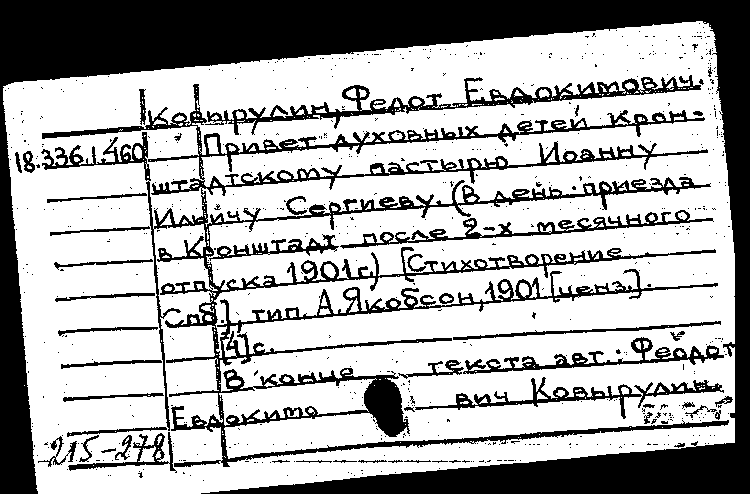 Ковырулин, Федот Евдокимович.
18.336.1.460 Привет духовных детей крон-
штадтскому пастырю Иоанну
Ильичу Сергиеву. (В день приезда
в Кронштадт после 2-х месячного
отпуска 1901 г.) [Стихотворение.
Спб], тип. А. Якобсон, 1901 [ценз.].
[4] с.
В конце текста авт.: Феодот
Евдокимо вич Ковырулин.
215-278